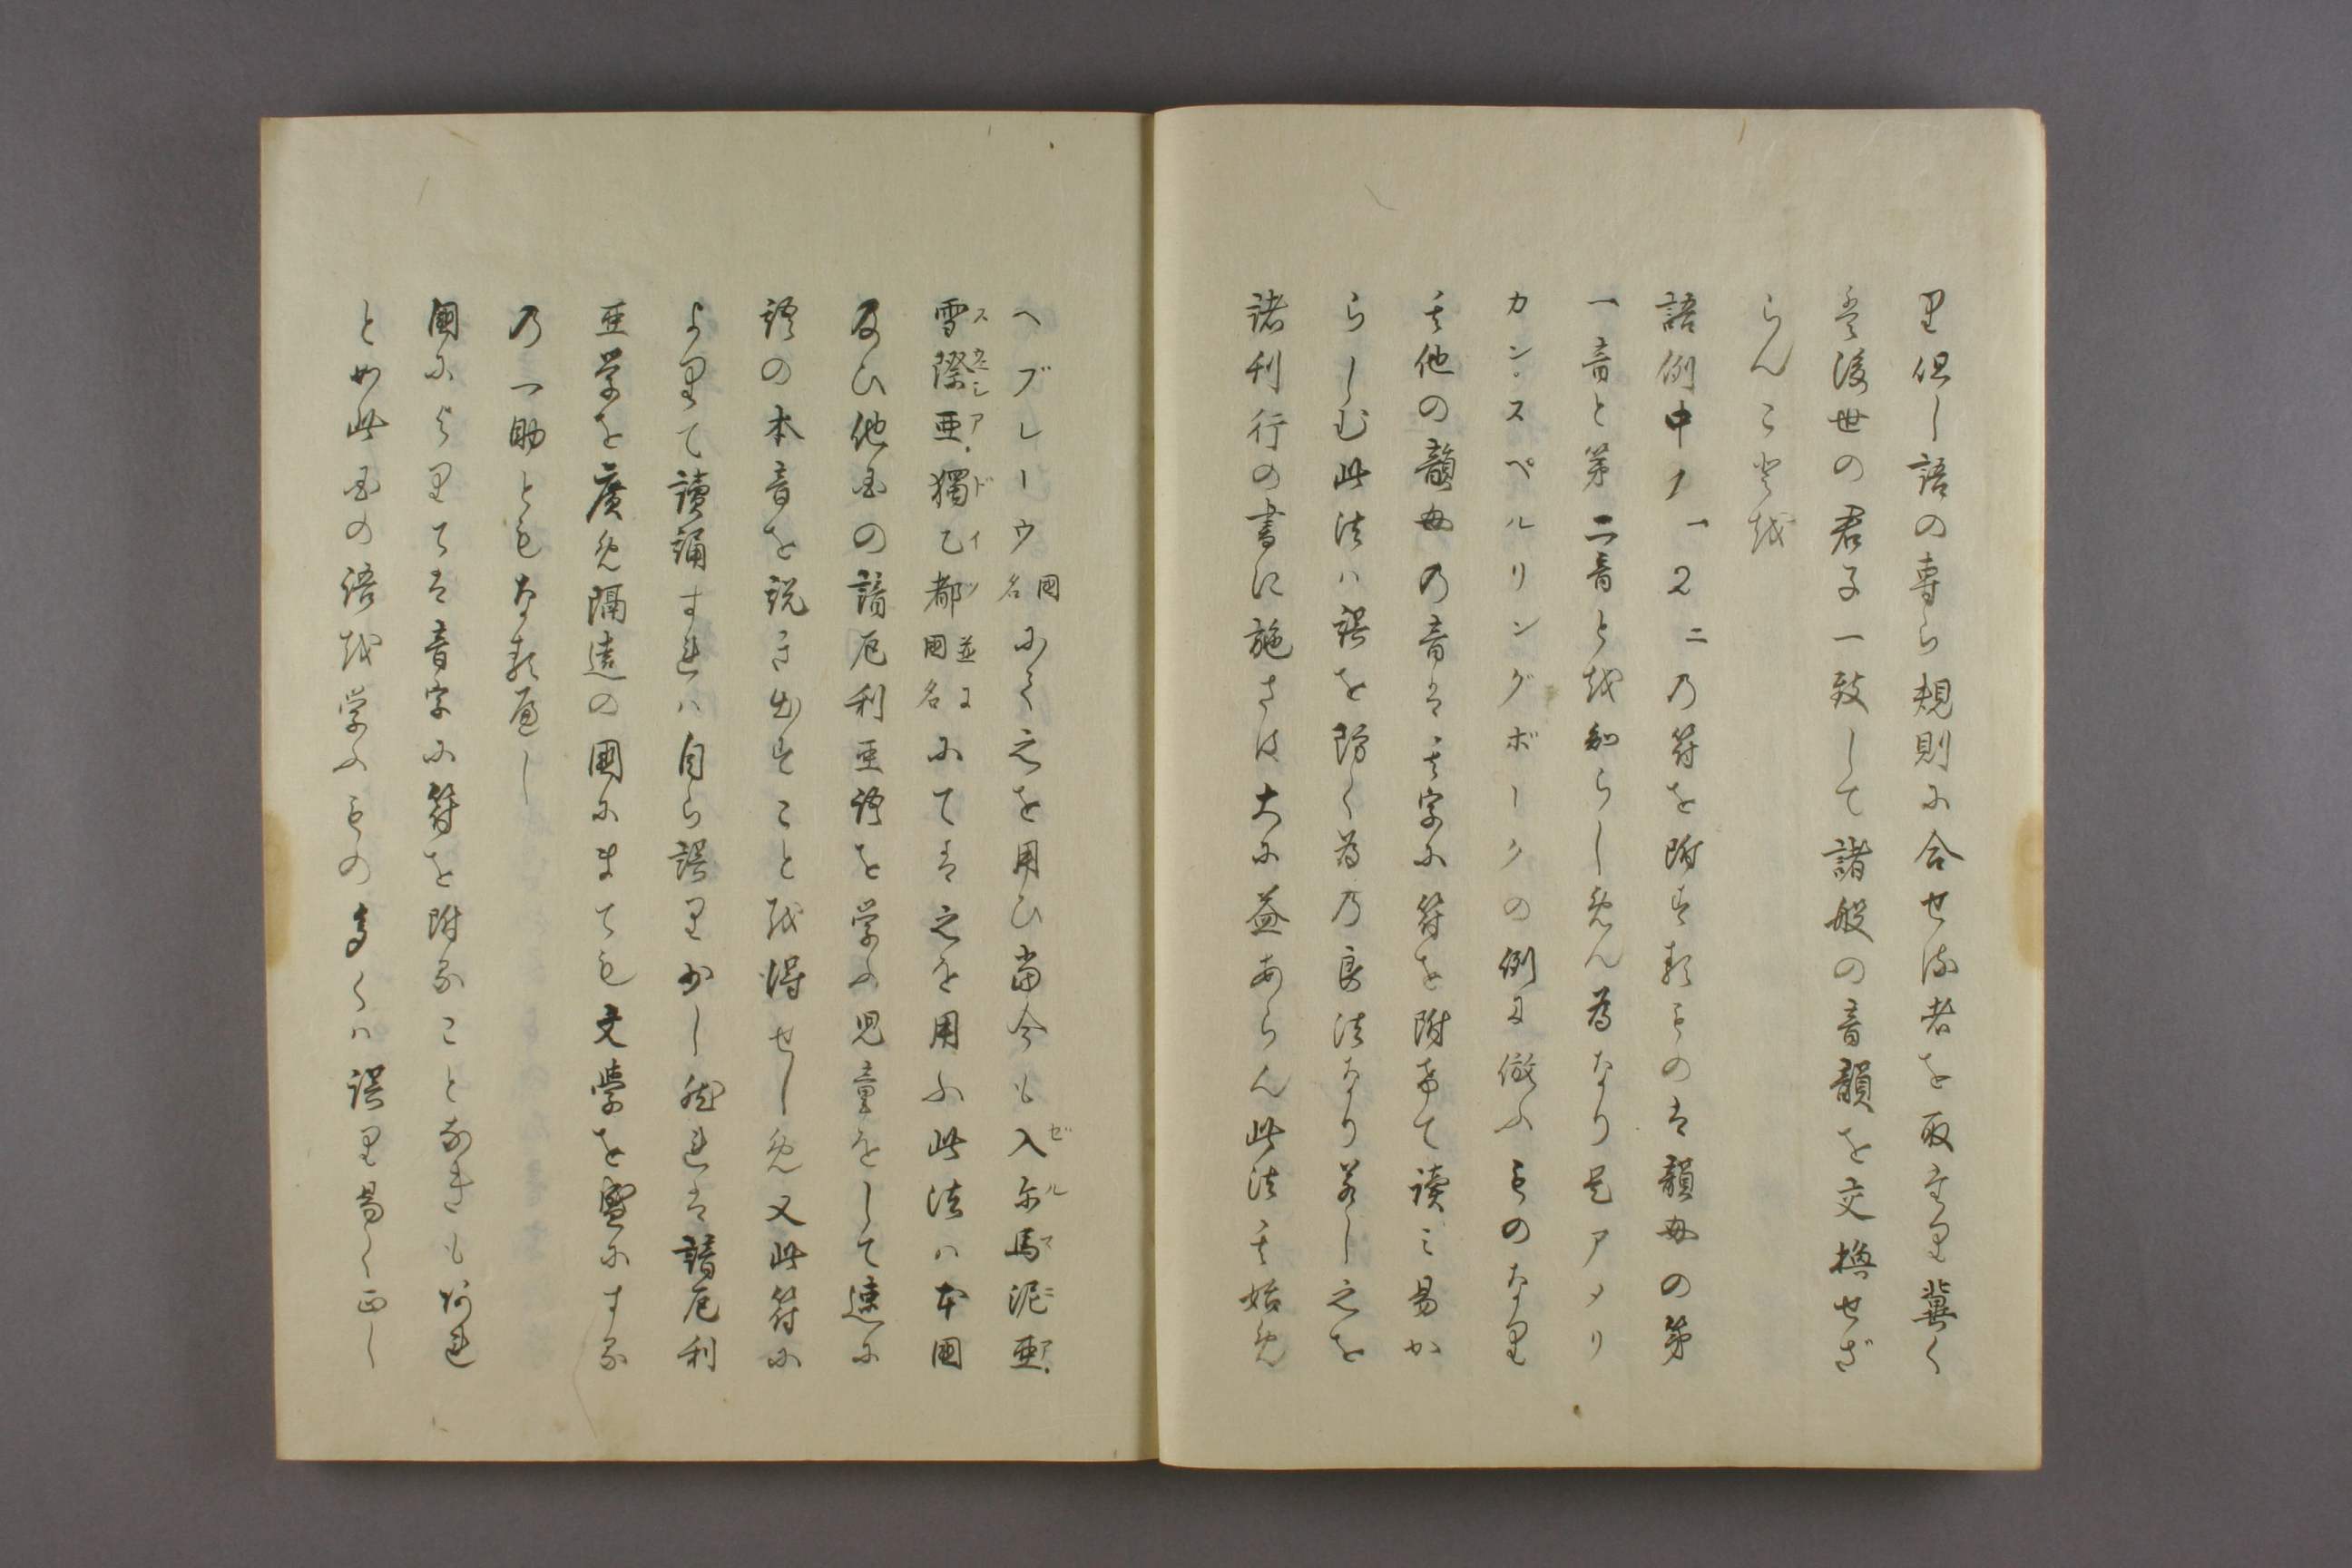 里但し語の専ら規則に合せる者を取まり冀く
は後世の君子一致して諸般の音韻を交換せざ
らんこと越
語例中1一2二乃符を附する類ものは韻母の第
一音と第二音と越知らしめん為なり是アメリ
カン.スペルリングボークの例に倣ふものなり
其他の韻母乃音は其字に符を附希て読み易か
らしむ此法ハ誤を防く為乃良法なり若し之を
諸刊行の書に施さは大に益あらん此法其始め
ヘブレーウ國名にて之を用ひ當今も入尓馬泥亜.
雪際亜.獨乙都並に國名にては之を用ふ此法ハ本國
及ひ他国の諳厄利亜語を学ふ児童をして速に
語の本音を説き出すこと越得せしめ又此符に
より て讀誦すれハ自ら誤り少し然れは諳厄利
亜学を廣め隔遠の國にまても文学を盛にする
乃一助ともなる遍し
國により ては音字に符を附ることなきも阿れ
とめ此国の語越学ふもの多くハ誤り易く正し